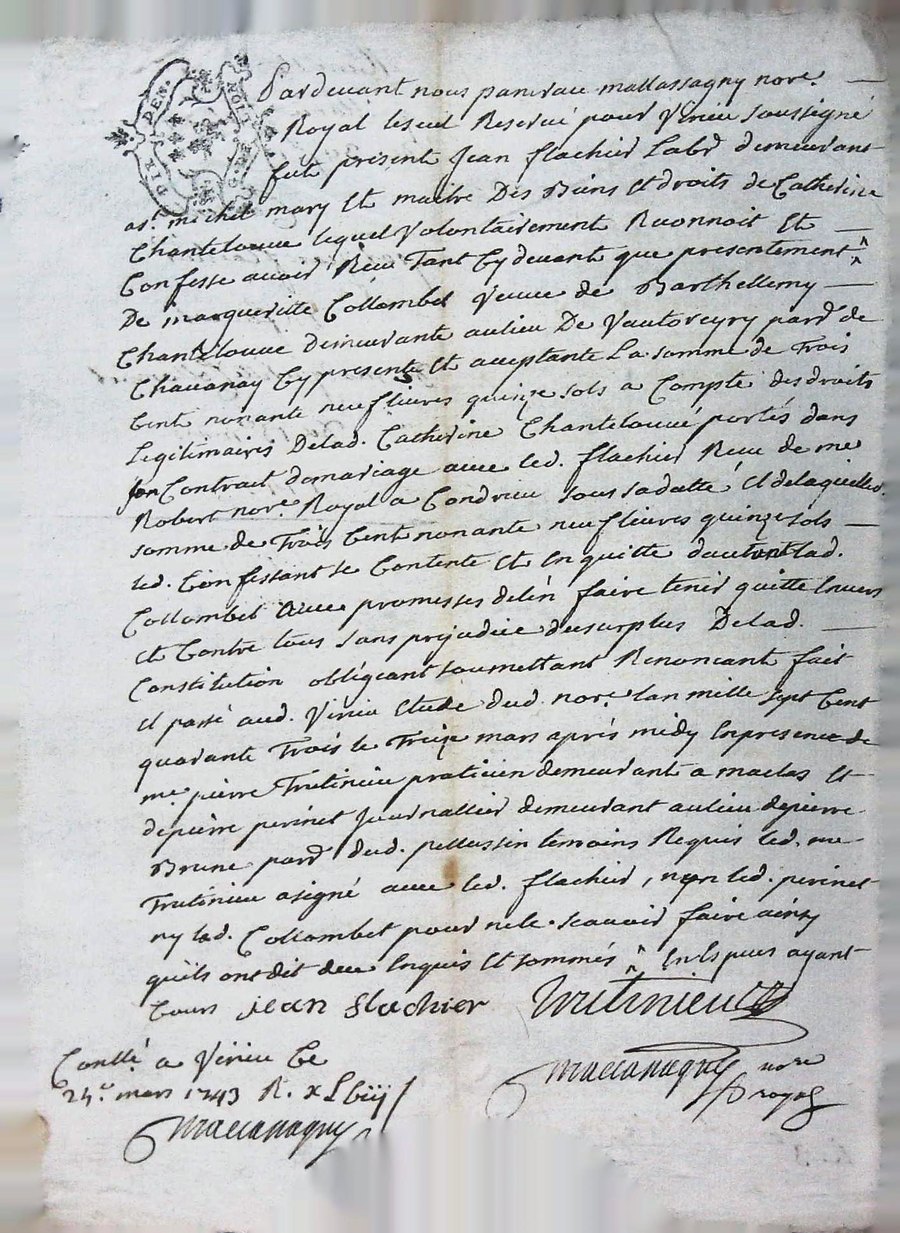 SIX DEN. NOIT
Pardevant nous pancrace mallassagny nore.
Royal Reservé pour Virieu soussigné
fut présent Jean flachier Labr demeurant
a st. michel mary Et maitre Des Biens Et droits de Catherine
Chantelouve lequel Volontairement Reconnoit Et
Confesse avoir Receu Tant Cy devant que presentement
De margueritte Collombet Veuve de Barthellemy
Chantelouve demeurante au lieu De Vautoreyry parr de
Chavanay Cy presente Et acceptante La somme de Trois
Cent nonante neuf livres quinze sols a Compte des droits
Legitimaires De lad. Catherine Chantelouve portés dans
son Contract de mariage avec led. flachier Receu de me
Robert nore. Royal a Condrieu sous sa datte, Et de laquelle
somme de Trois Cent nonante neuf livres quinze sols
led. Confessant se Contente Et En quitte d'autant lad.
Collombet avec promesses de l'en faire tenir quitte Envers
Et Contre tous sans prejudice du surplus De lad.
Constitution obligeant soumettant Renoncant fait
Et passé aud. Virieu Etude dud. nore. lan mille sept Cent
quarante Trois le Treize mars après midy En presence de
me. pierre Trutinieu praticien demeurant a maclas Et
de pierre perinet Journallier demeurant au lieu de pierre
Brune parr dud. pellussin temoins Requis led. me
Trutinieu a signé avec led. flachier, non led. perinet
ny lad. Collombet pour ne le scavoir faire ainsy
qu'ils ont dit de ce Enquis Et sommés Especes ayant
Cours jean flachier Trutinieu
Conllé a Virieu Ce
24. mars 1743 R.
nore
royal